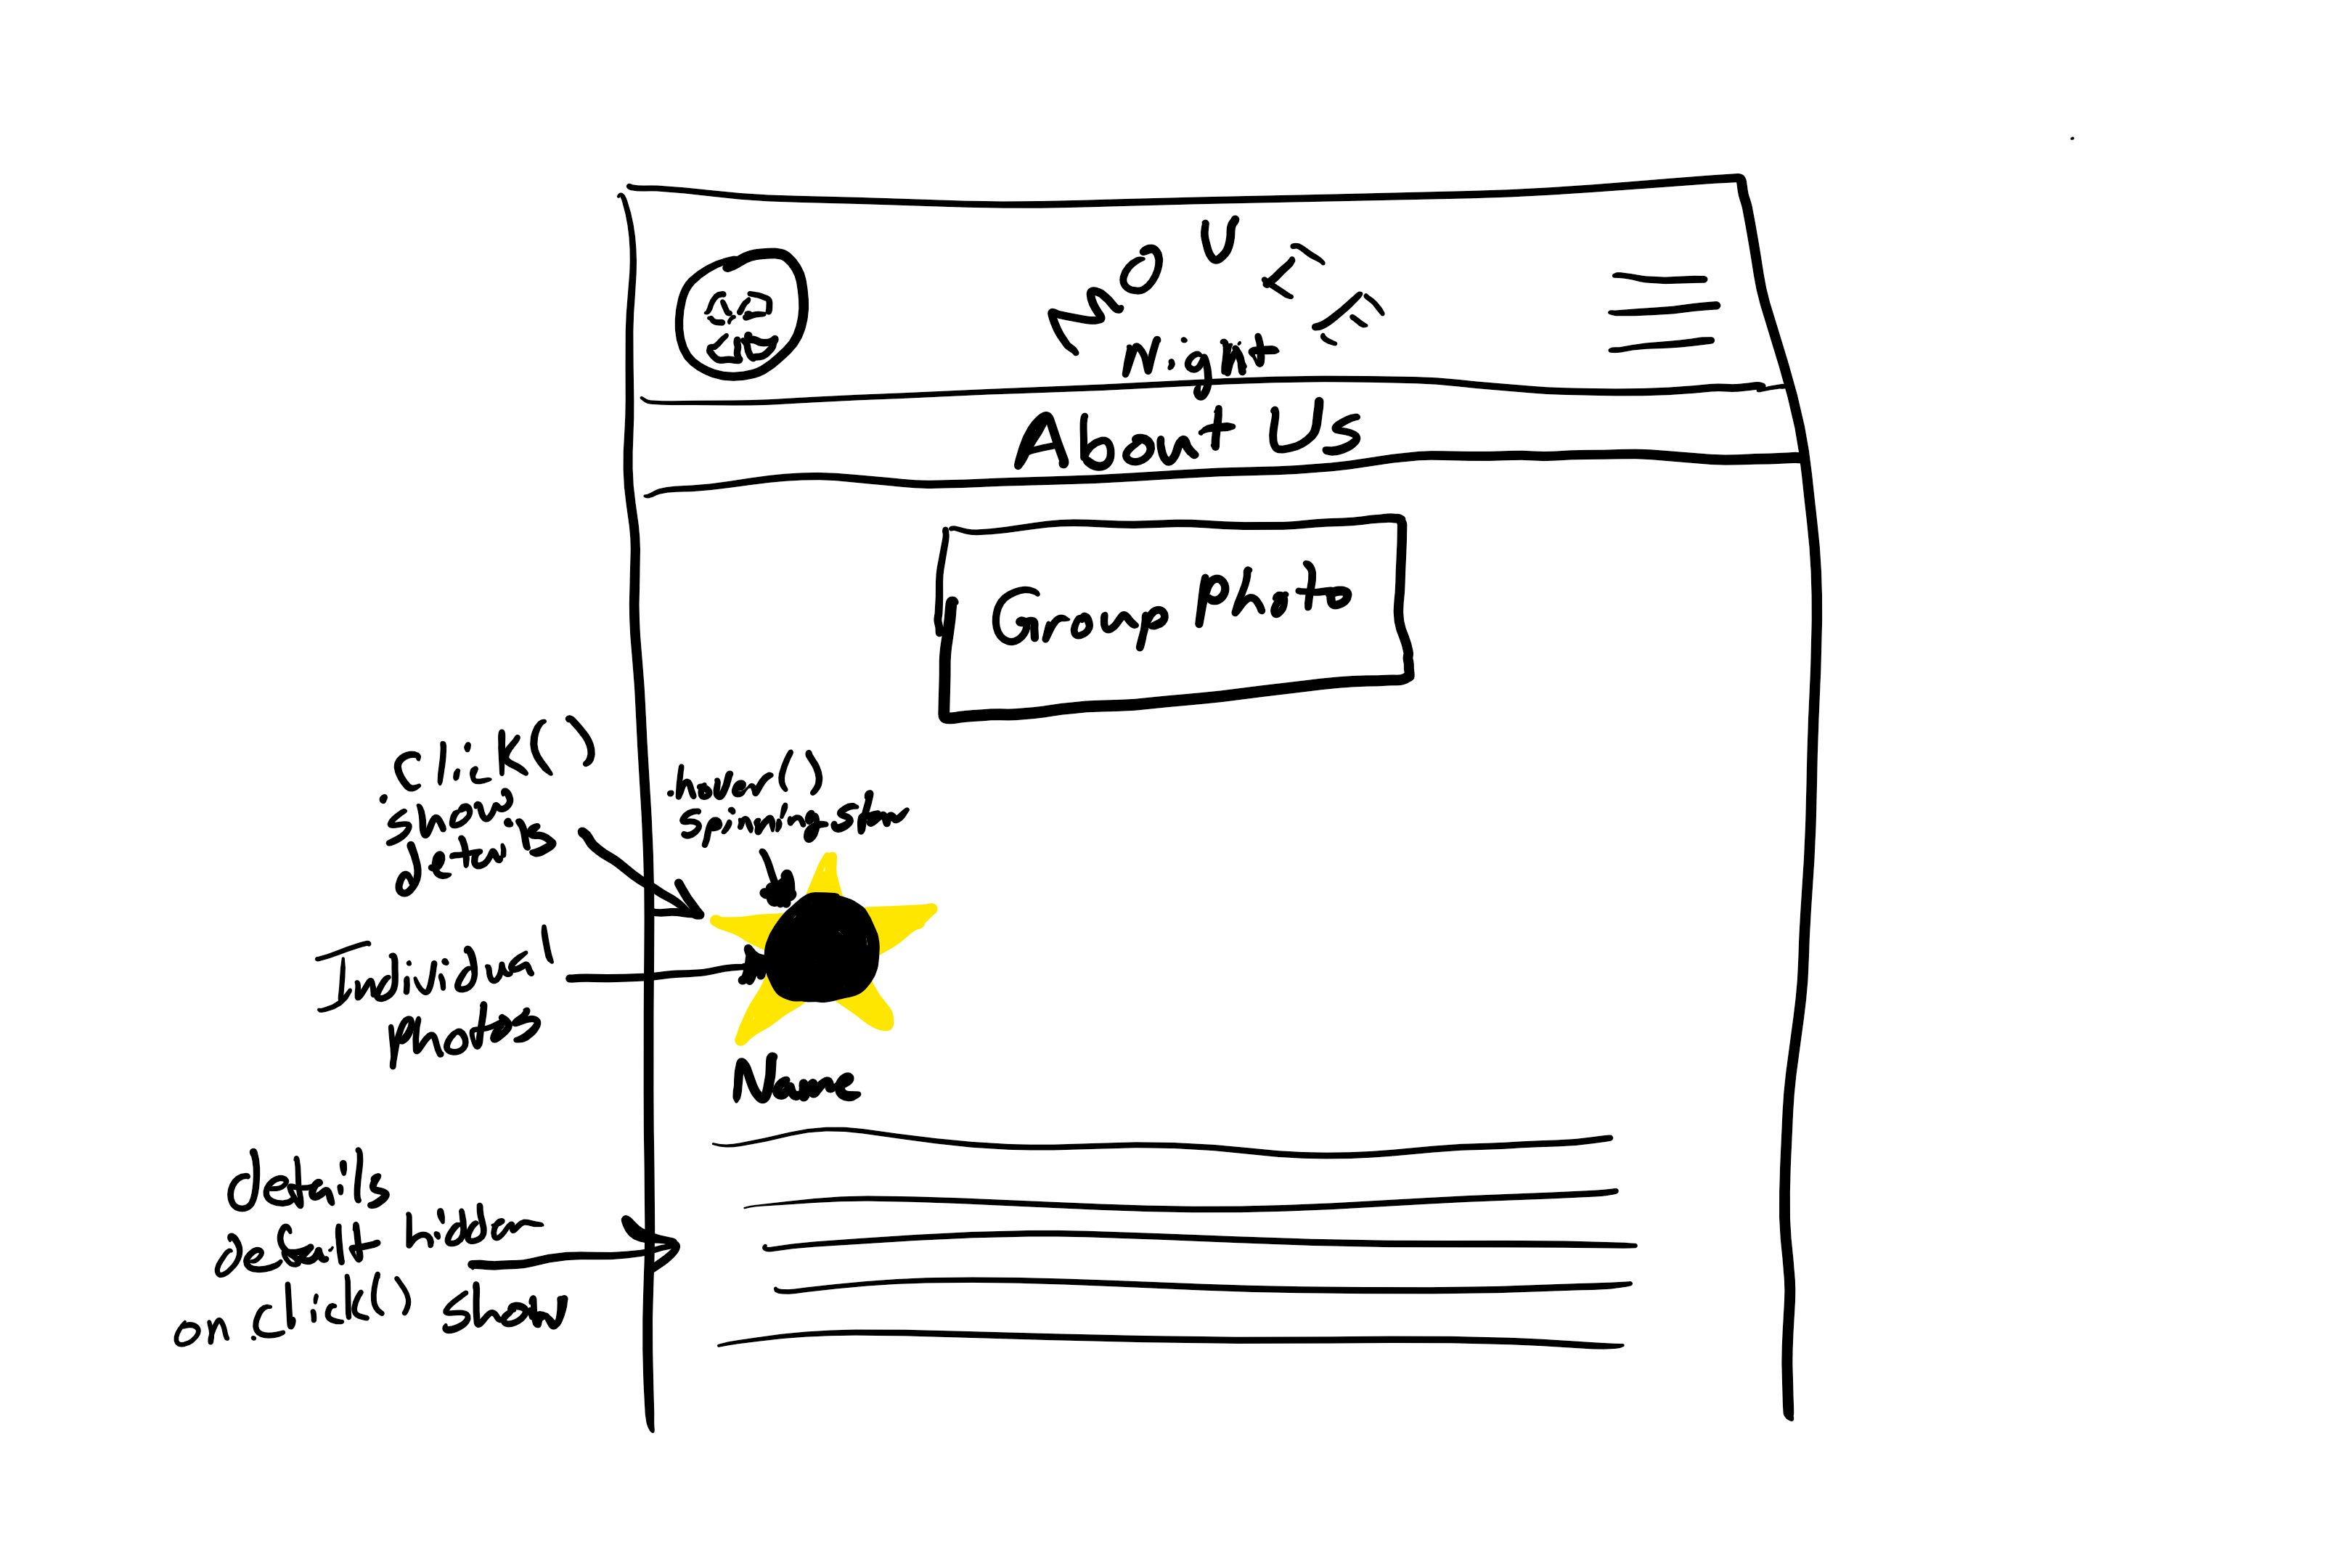 MOVIE
Night
About Us
Group Photo
.click()
show
details
.hover()
spinning star
Individual
Photos
Name
details
default hidden
on .click() show